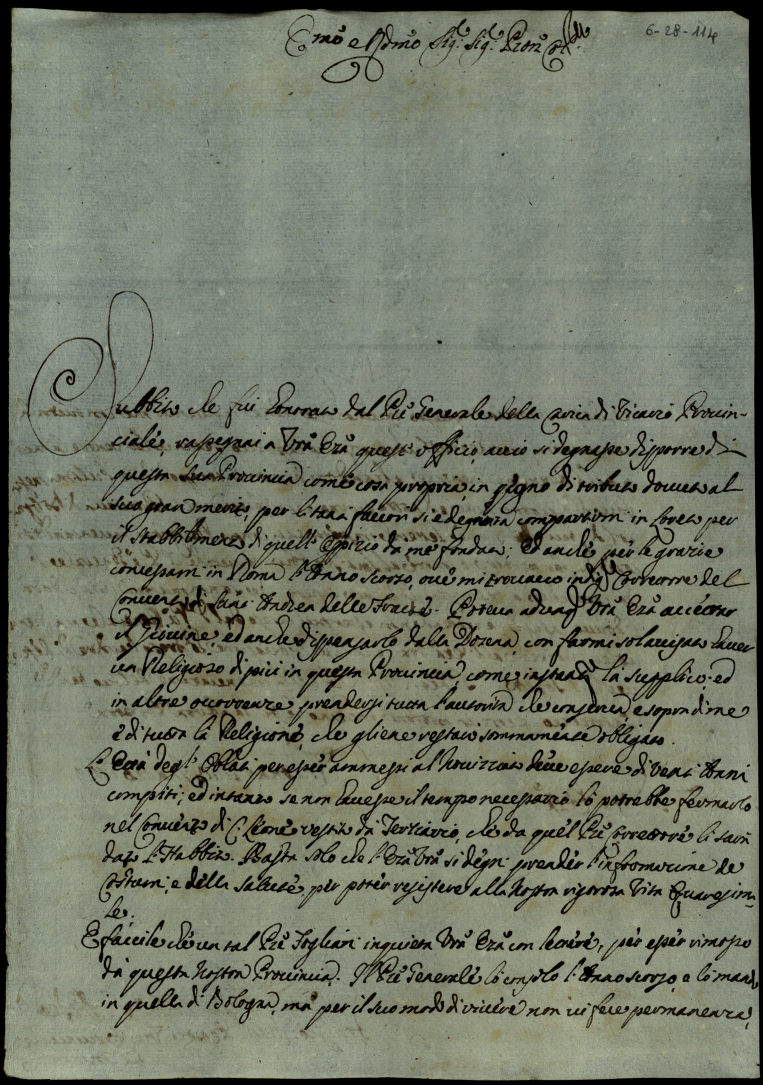 6-28-114
Emo e Rdmo Sig.r Sig.r Pron Col
Subbito che fui honorato dal Pre Generale della carica di Vicario Provin-
ciale, rassegnai a Vra Eza quest'officio, accio si degnasse disporre di
questa sua Provincia come cosa propria, in pegno di tributo douuto al
suo gran merito, per li tanti fauori si è degnata compartirmi in Loreto per
il stabbilimento di quell'Ospizio da me fondato; ed anche per le grazie
concessami in Roma l'Anno scorso, oue mi trouauo Correttore del
Conuento di Sant'Andrea delle Fratte. Poteua adunq Vra Eza accettare
il Giouine, ed anche dispensarlo dalla Dozena, con farmi solo auisato hauer
un Religioso di più in questa Provincia, come la supplico; ed
in altre occorrenze prendersi tutta l'autorità che conserua, e sopra di me
è di tutta la Religione, che gliene restarò sommamente obligato.
L'Età degl'Oblati per esser ammessi al Nouizziato deue essere di venti Anni
compiti; ed intanto se non hauesse il tempo necessario lo potrebbe fermarlo
nel Conuento di S. Leone vestito da Terziario, che da quel Pre Correttore li sarà
dato l'Habbito. Basta solo che l'Eza Vra si degni prender l'informazione de
Costumi, e della salute, per poter resistere alla Nostra rigorosa Vita Quaresima-
le.
E faccile che un tal Pre Fogliari inquieta Vra Eza con lettere, per esser rimosso
da questa Nostra Provincia. Il Pre Generale lo consolò l'Anno scorso, e lo mandò
in quella di Bologna, ma per il suo modo di viuere non ui fece permanenza,